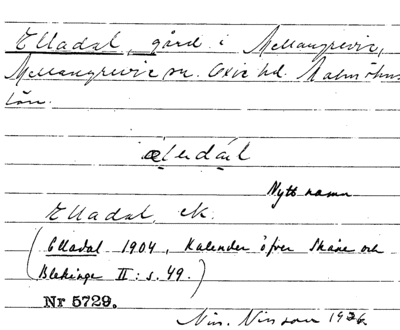 Elladal, gård i Mellangrevie,
Mellangrevie sn. Oxie hd. Malmöhus
län.
Nytt namn
Elladal, ek.
(Elladal 1904, Kalender öfver Skåne och
Blekinge II: s. 49.)
Nr 5729.
Nils. Nilsson 1926.